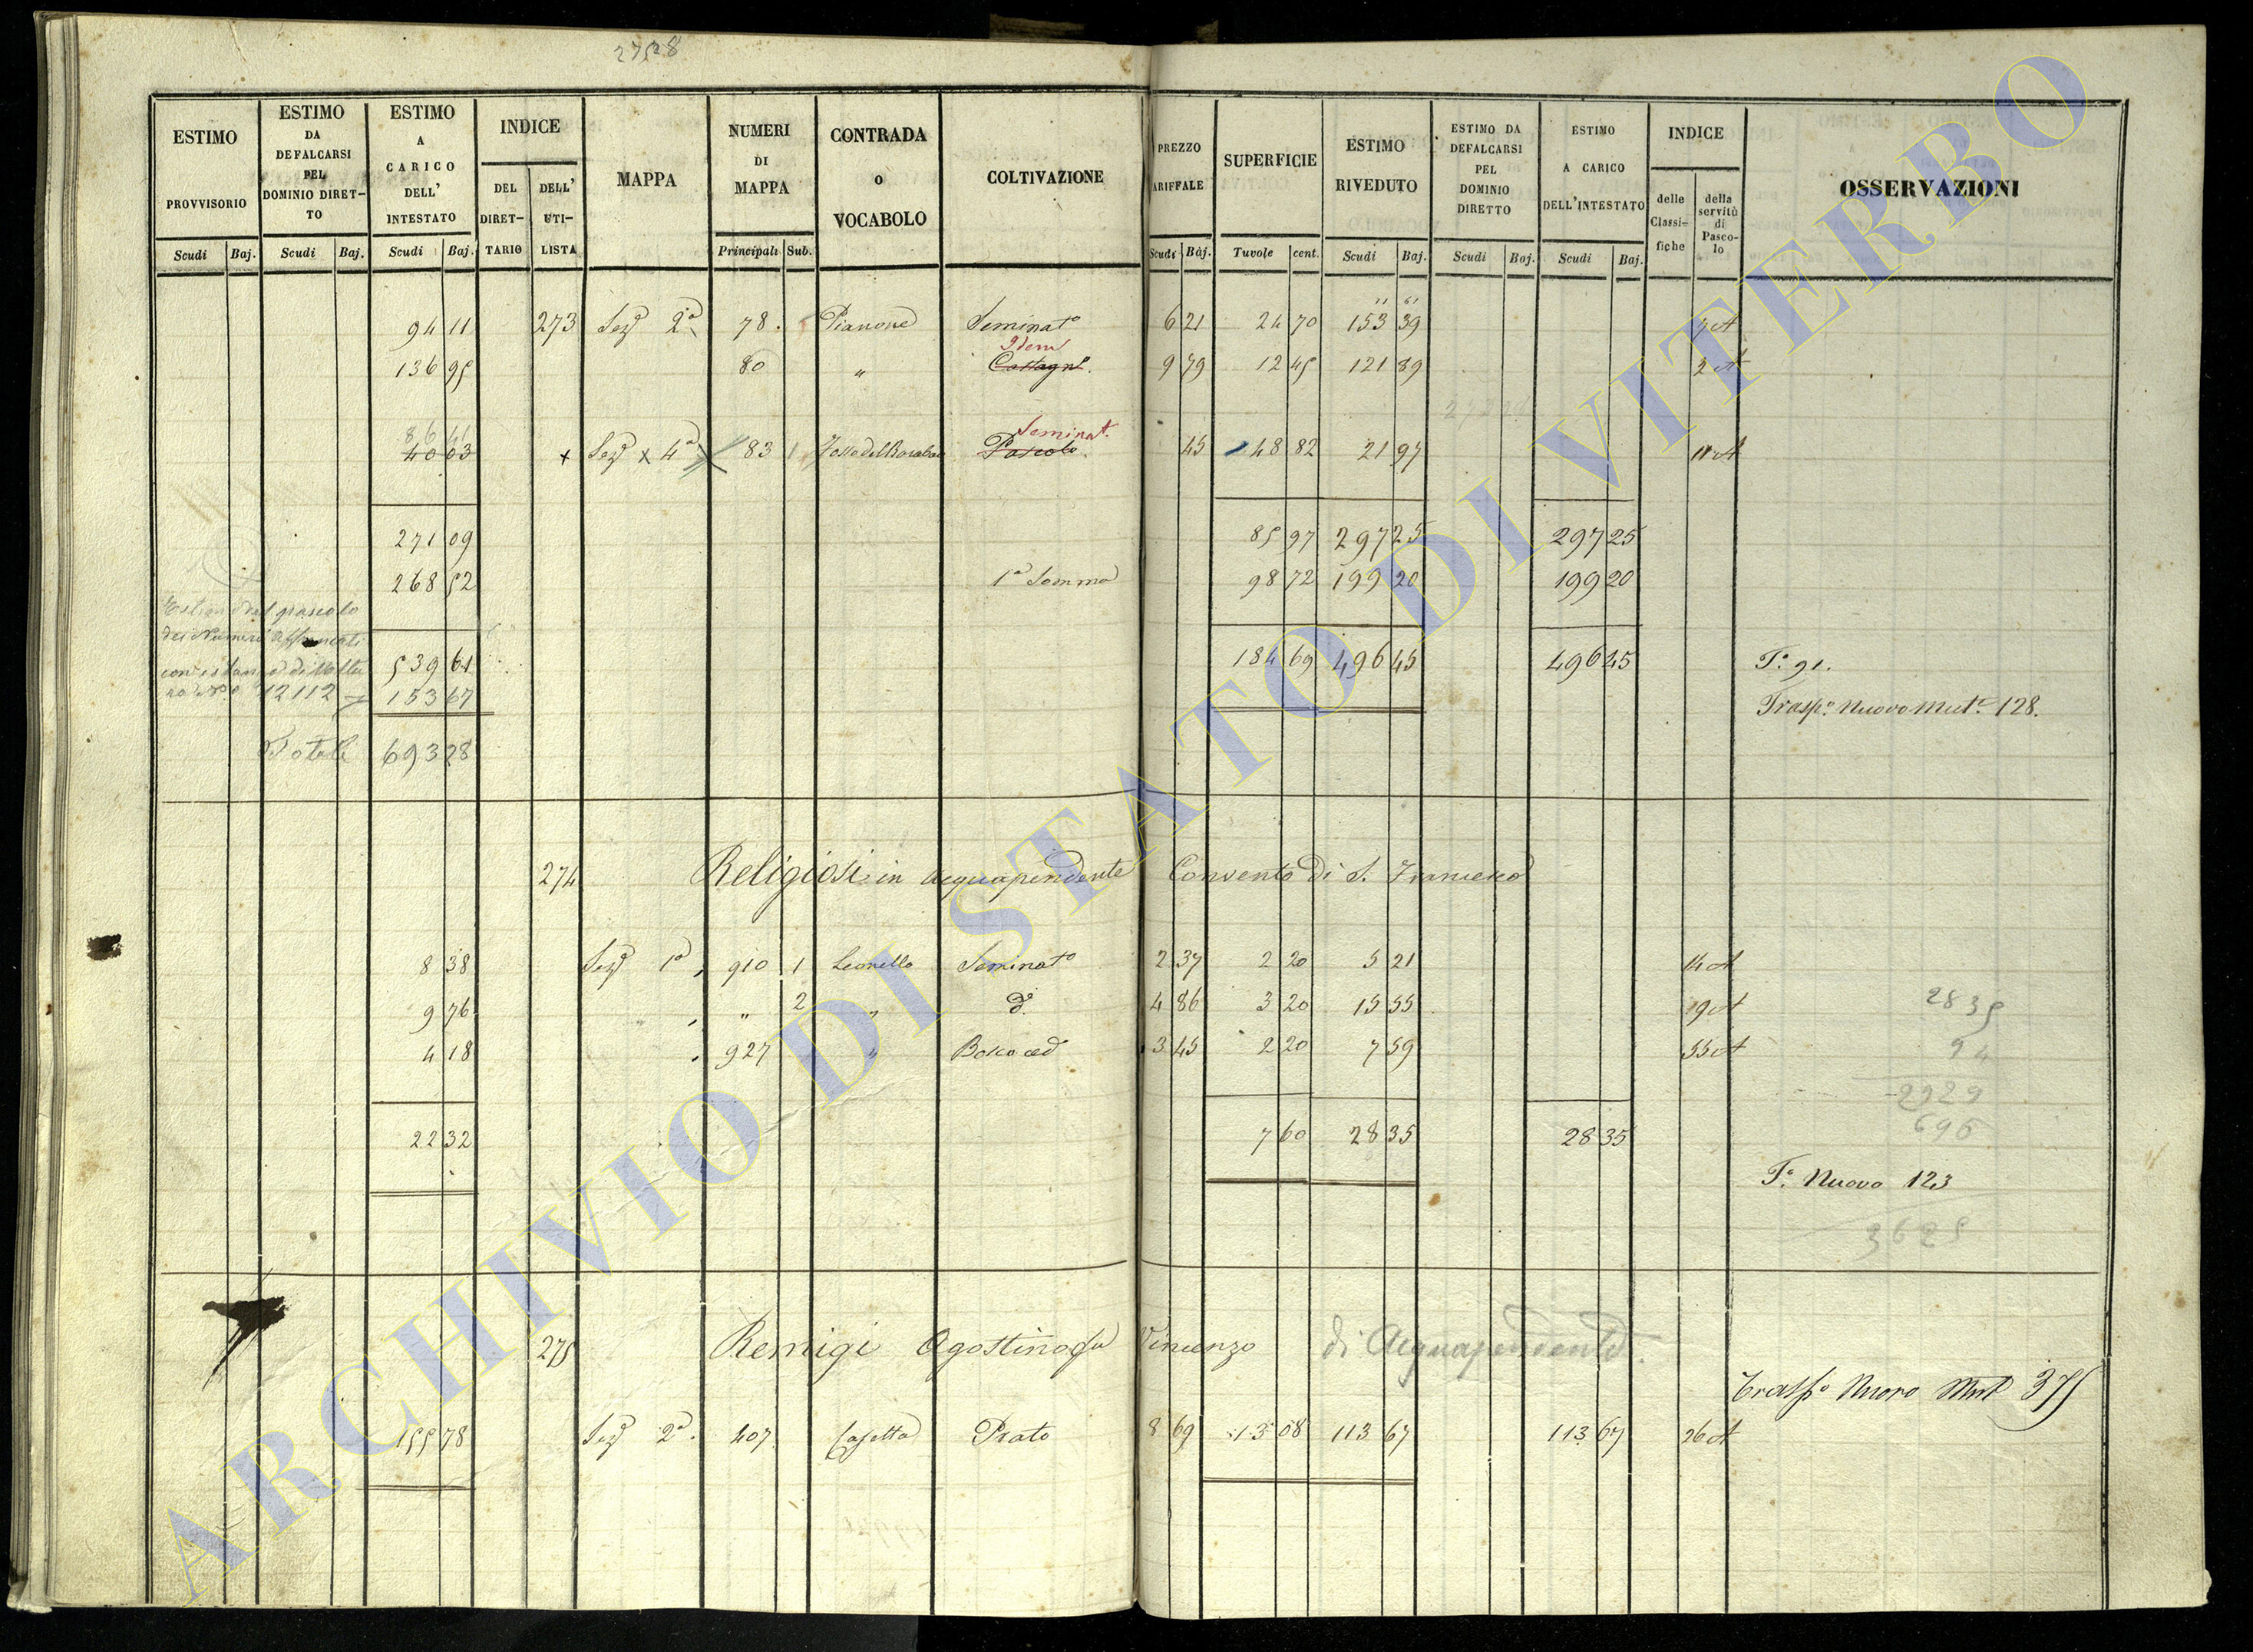 2758
ESTIMO PROVVISORIO
ESTIMO DA DEFALCARSI PEL DOMINIO DIRETTO
ESTIMO A CARICO DELL' INTESTATO
INDICE
DEL DIRETTARIO
DELL' UTILISTA
MAPPA
NUMERI DI MAPPA
CONTRADA o VOCABOLO
COLTIVAZIONE
PREZZO ARIFFALE
SUPERFICIE
ESTIMO RIVEDUTO
ESTIMO DA DEFALCARSI PEL DOMINIO DIRETTO
ESTIMO A CARICO DELL'INTESTATO
INDICE
delle Classifiche
della servitù di Pascolo
OSSERVAZIONI
Scudi Baj. Scudi Baj. Scudi Baj. Principali Sub. Scudi Baj. Tavole cent. Scudi Baj. Scudi Baj. Scudi Baj.
94 11 273 Sezе 2ª 78 Pianone Seminato 6 21 24 70 153 39 7 A
Idem
136 95 80 " Castagn. 9 79 12 45 121 89 2 A
Seminat.
40 03 x Seze x 4ª 83 1 Pascolo 45 48 82 21 97 11 A
271 09 85 97 297 25 297 25
268 52 1ª Somma 98 72 199 20 199 20
Estimo del pascolo
dei Numeri affrancati
con istanza di
12112
539 61 184 69 496 45 496 45 Tº 91.
153 67 Traspº Nuovo Mutº 128.
Totale 693 28
274 Religiosi in Acquapendente Convento di S. Francesco
8 38 Seze 1ª 910 1 Leonello Seminato 2 37 2 20 5 21 14 A
9 76 " 2 " dº 4 86 3 20 15 55 19 A
4 18 927 " Bosco ced 3 45 2 20 7 59 55 A
2835
94
2929
696
22 32 7 60 28 35 28 35
Tº Nuovo 123
3625
275 Remigi Agostino fu Vincenzo di Acquapendente
Traspº Nuovo Mut 375
155 78 Seze 2ª 407 Casetta Prato 8 69 13 08 113 67 113 67 26 A
ARCHIVIO DI STATO DI VITERBO